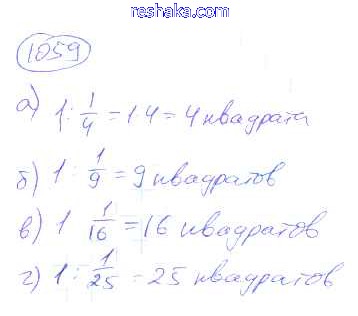 reshaka.com
1059
а) 1 : 1/4 = 1·4 = 4 квадрата
б) 1 : 1/9 = 9 квадратов
в) 1 1/16 = 16 квадратов
г) 1 : 1/25 = 25 квадратов